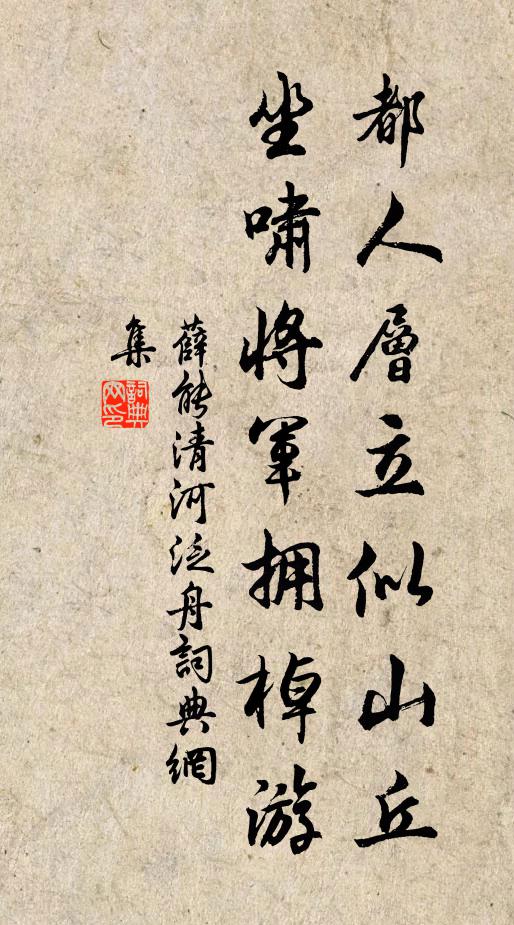 都人層立似山丘
坐嘯將軍拥棹游
薛能清河泛舟詞典網
集
詞典
网印